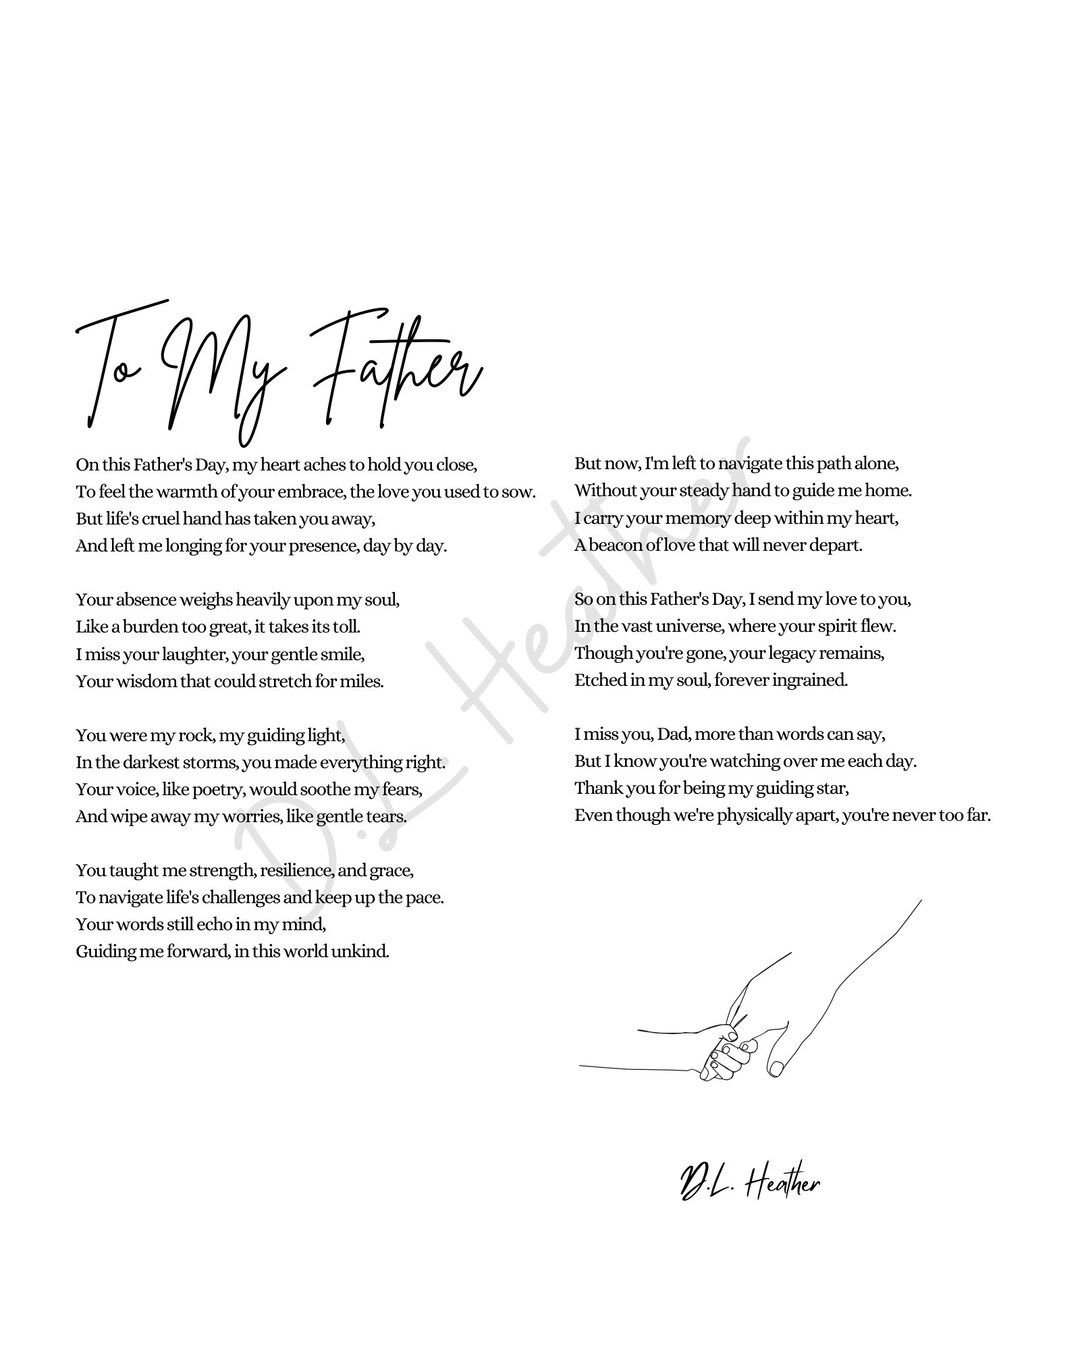 To My Father
On this Father's Day, my heart aches to hold you close,
To feel the warmth of your embrace, the love you used to sow.
But life's cruel hand has taken you away,
And left me longing for your presence, day by day.
Your absence weighs heavily upon my soul,
Like a burden too great, it takes its toll.
I miss your laughter, your gentle smile,
Your wisdom that could stretch for miles.
You were my rock, my guiding light,
In the darkest storms, you made everything right.
Your voice, like poetry, would soothe my fears,
And wipe away my worries, like gentle tears.
You taught me strength, resilience, and grace,
To navigate life's challenges and keep up the pace.
Your words still echo in my mind,
Guiding me forward, in this world unkind.
But now, I'm left to navigate this path alone,
Without your steady hand to guide me home.
I carry your memory deep within my heart,
A beacon of love that will never depart.
So on this Father's Day, I send my love to you,
In the vast universe, where your spirit flew.
Though you're gone, your legacy remains,
Etched in my soul, forever ingrained.
I miss you, Dad, more than words can say,
But I know you're watching over me each day.
Thank you for being my guiding star,
Even though we're physically apart, you're never too far.
D.L. Heather
D.L. Heather